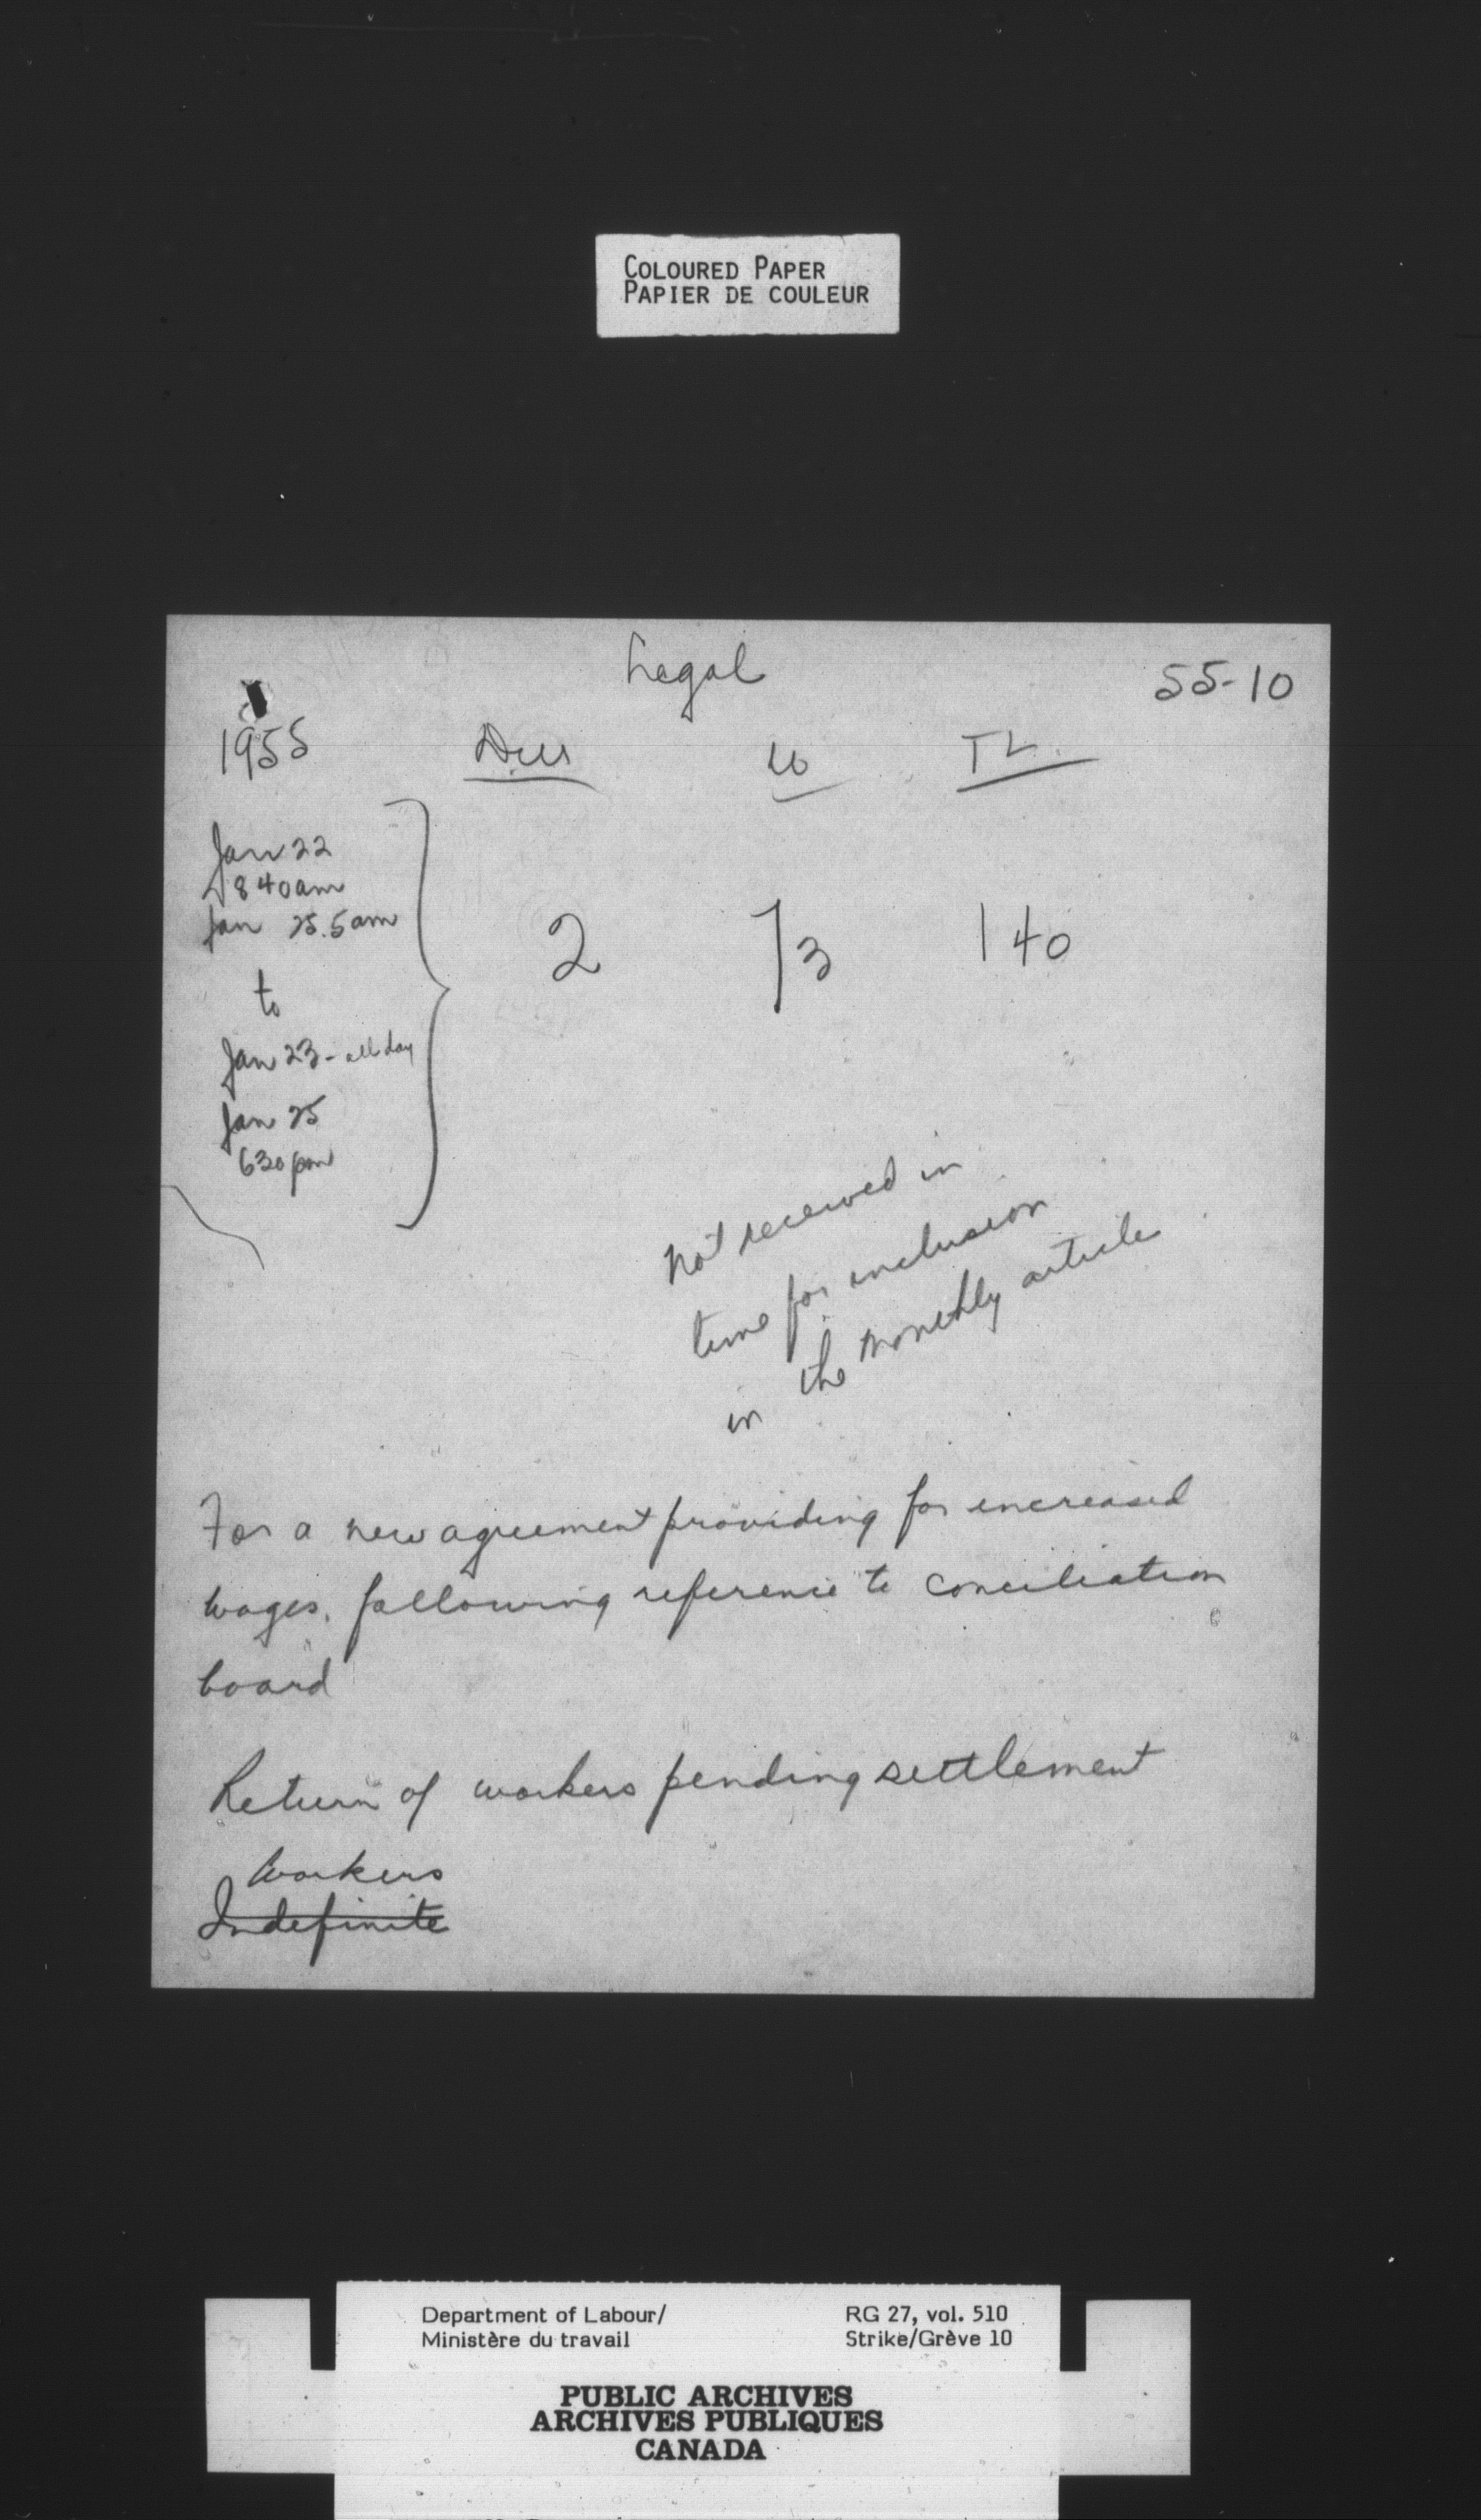 COLOURED PAPER
PAPIER DE COULEUR
Legal
55-10
1955
W
TL
Jan 22
8 40 am
Jan 25. 5 am
to
Jan 23 - all day
Jan 25
6 30 pm
2 73 140
Not received in
time for inclusion
in the monthly article
For a new agreement providing for increased
wages, following reference to conciliation
board
Return of workers pending settlement
Workers
Indefinite
Department of Labour/
Ministère du travail
RG 27, vol. 510
Strike/Grève 10
PUBLIC ARCHIVES
ARCHIVES PUBLIQUES
CANADA